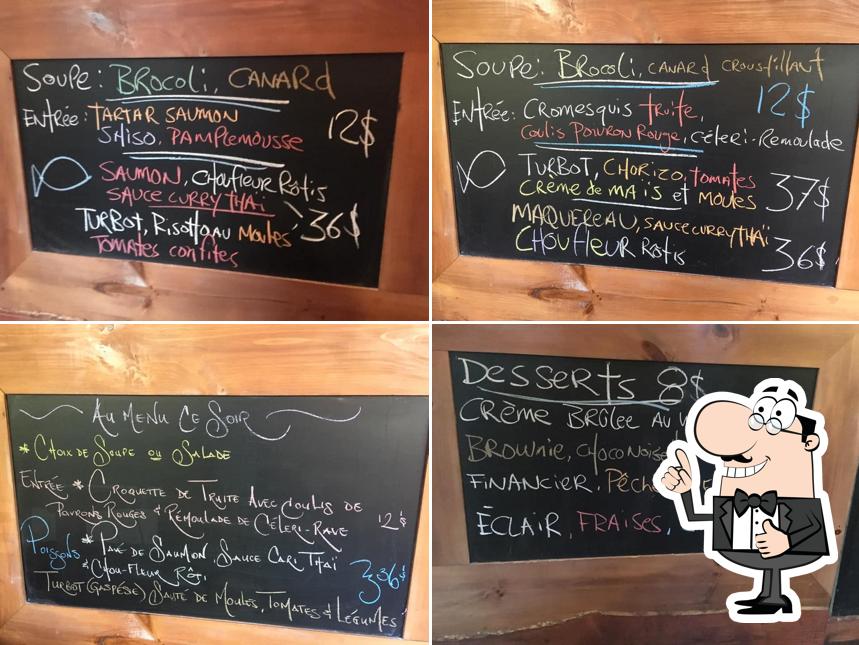 SOUPE: BROCOLI, CANARD
ENTRÉE: TARTAR SAUMON
SHISO, PAMPLEMOUSSE 12$
SAUMON, CHOUFLEUR RÔTIS
SAUCE CURRY THAÏ
36$
TURBOT, RISOTTO AU MOULES
TOMATES CONFITES
SOUPE: BROCOLI, CANARD CROUSTILLANT
12$
ENTRÉE: CROMESQUIS TRUITE,
COULIS POIVRON ROUGE, CÉLERI-REMOULADE
TURBOT, CHORIZO, TOMATES
CRÈME DE MAÏS ET MOULES 37$
MAQUEREAU, SAUCE CURRY THAÏ
CHOUFLEUR RÔTIS 36$
AU MENU CE SOIR
* CHOIX DE SOUPE OU SALADE
ENTRÉE * CROQUETTE DE TRUITE AVEC COULIS DE
POIVRONS ROUGES & RÉMOULADE DE CÉLERI-RAVE 12$
POISSONS * PAVÉ DE SAUMON, SAUCE CARI THAÏ
& CHOU-FLEUR RÔTI
36$
TURBOT (GASPÉSIE) SAUTÉ DE MOULES, TOMATES & LÉGUMES
DESSERTS 8$
CRÈME BRÛLÉE AU
BROWNIE, CHOCO NOISE
FINANCIER, PÊCH
ÉCLAIR, FRAISES,